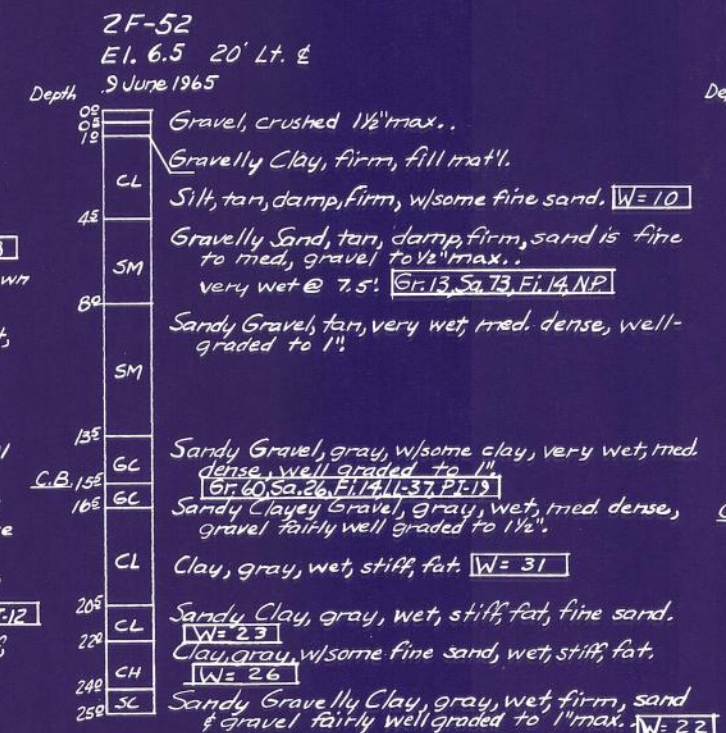 2F-52
El. 6.5 20' Lt. ℄
9 June 1965
Depth
0⁰
0⁵
1⁰
Gravel, crushed 1½" max..
Gravelly Clay, firm, fill mat'l.
CL
Silt, tan, damp, firm, w/some fine sand. W=10
4⁵
Gravelly Sand, tan, damp, firm, sand is fine
SM
to med, gravel to ½" max..
very wet @ 7.5'. Gr.13, Sa.73, Fi.14, NP
8⁰
Sandy Gravel, tan, very wet, med. dense, well-
graded to 1".
SM
13⁵
Sandy Gravel, gray, w/some clay, very wet, med.
GC
dense, well graded to 1".
C.B. 15⁵
Gr.60, Sa.26, Fi.14, Ll-37, PI-19
16⁵
GC
Sandy Clayey Gravel, gray, wet, med. dense,
gravel fairly well graded to 1½".
CL
Clay, gray, wet, stiff, fat. W=31
20⁵
Sandy Clay, gray, wet, stiff, fat, fine sand.
CL
W=23
22⁰
Clay, gray, w/some fine sand, wet, stiff, fat.
CH
W=26
24⁰
SC
Sandy Gravelly Clay, gray, wet, firm, sand
25⁰
& gravel fairly well graded to 1" max.. W=22